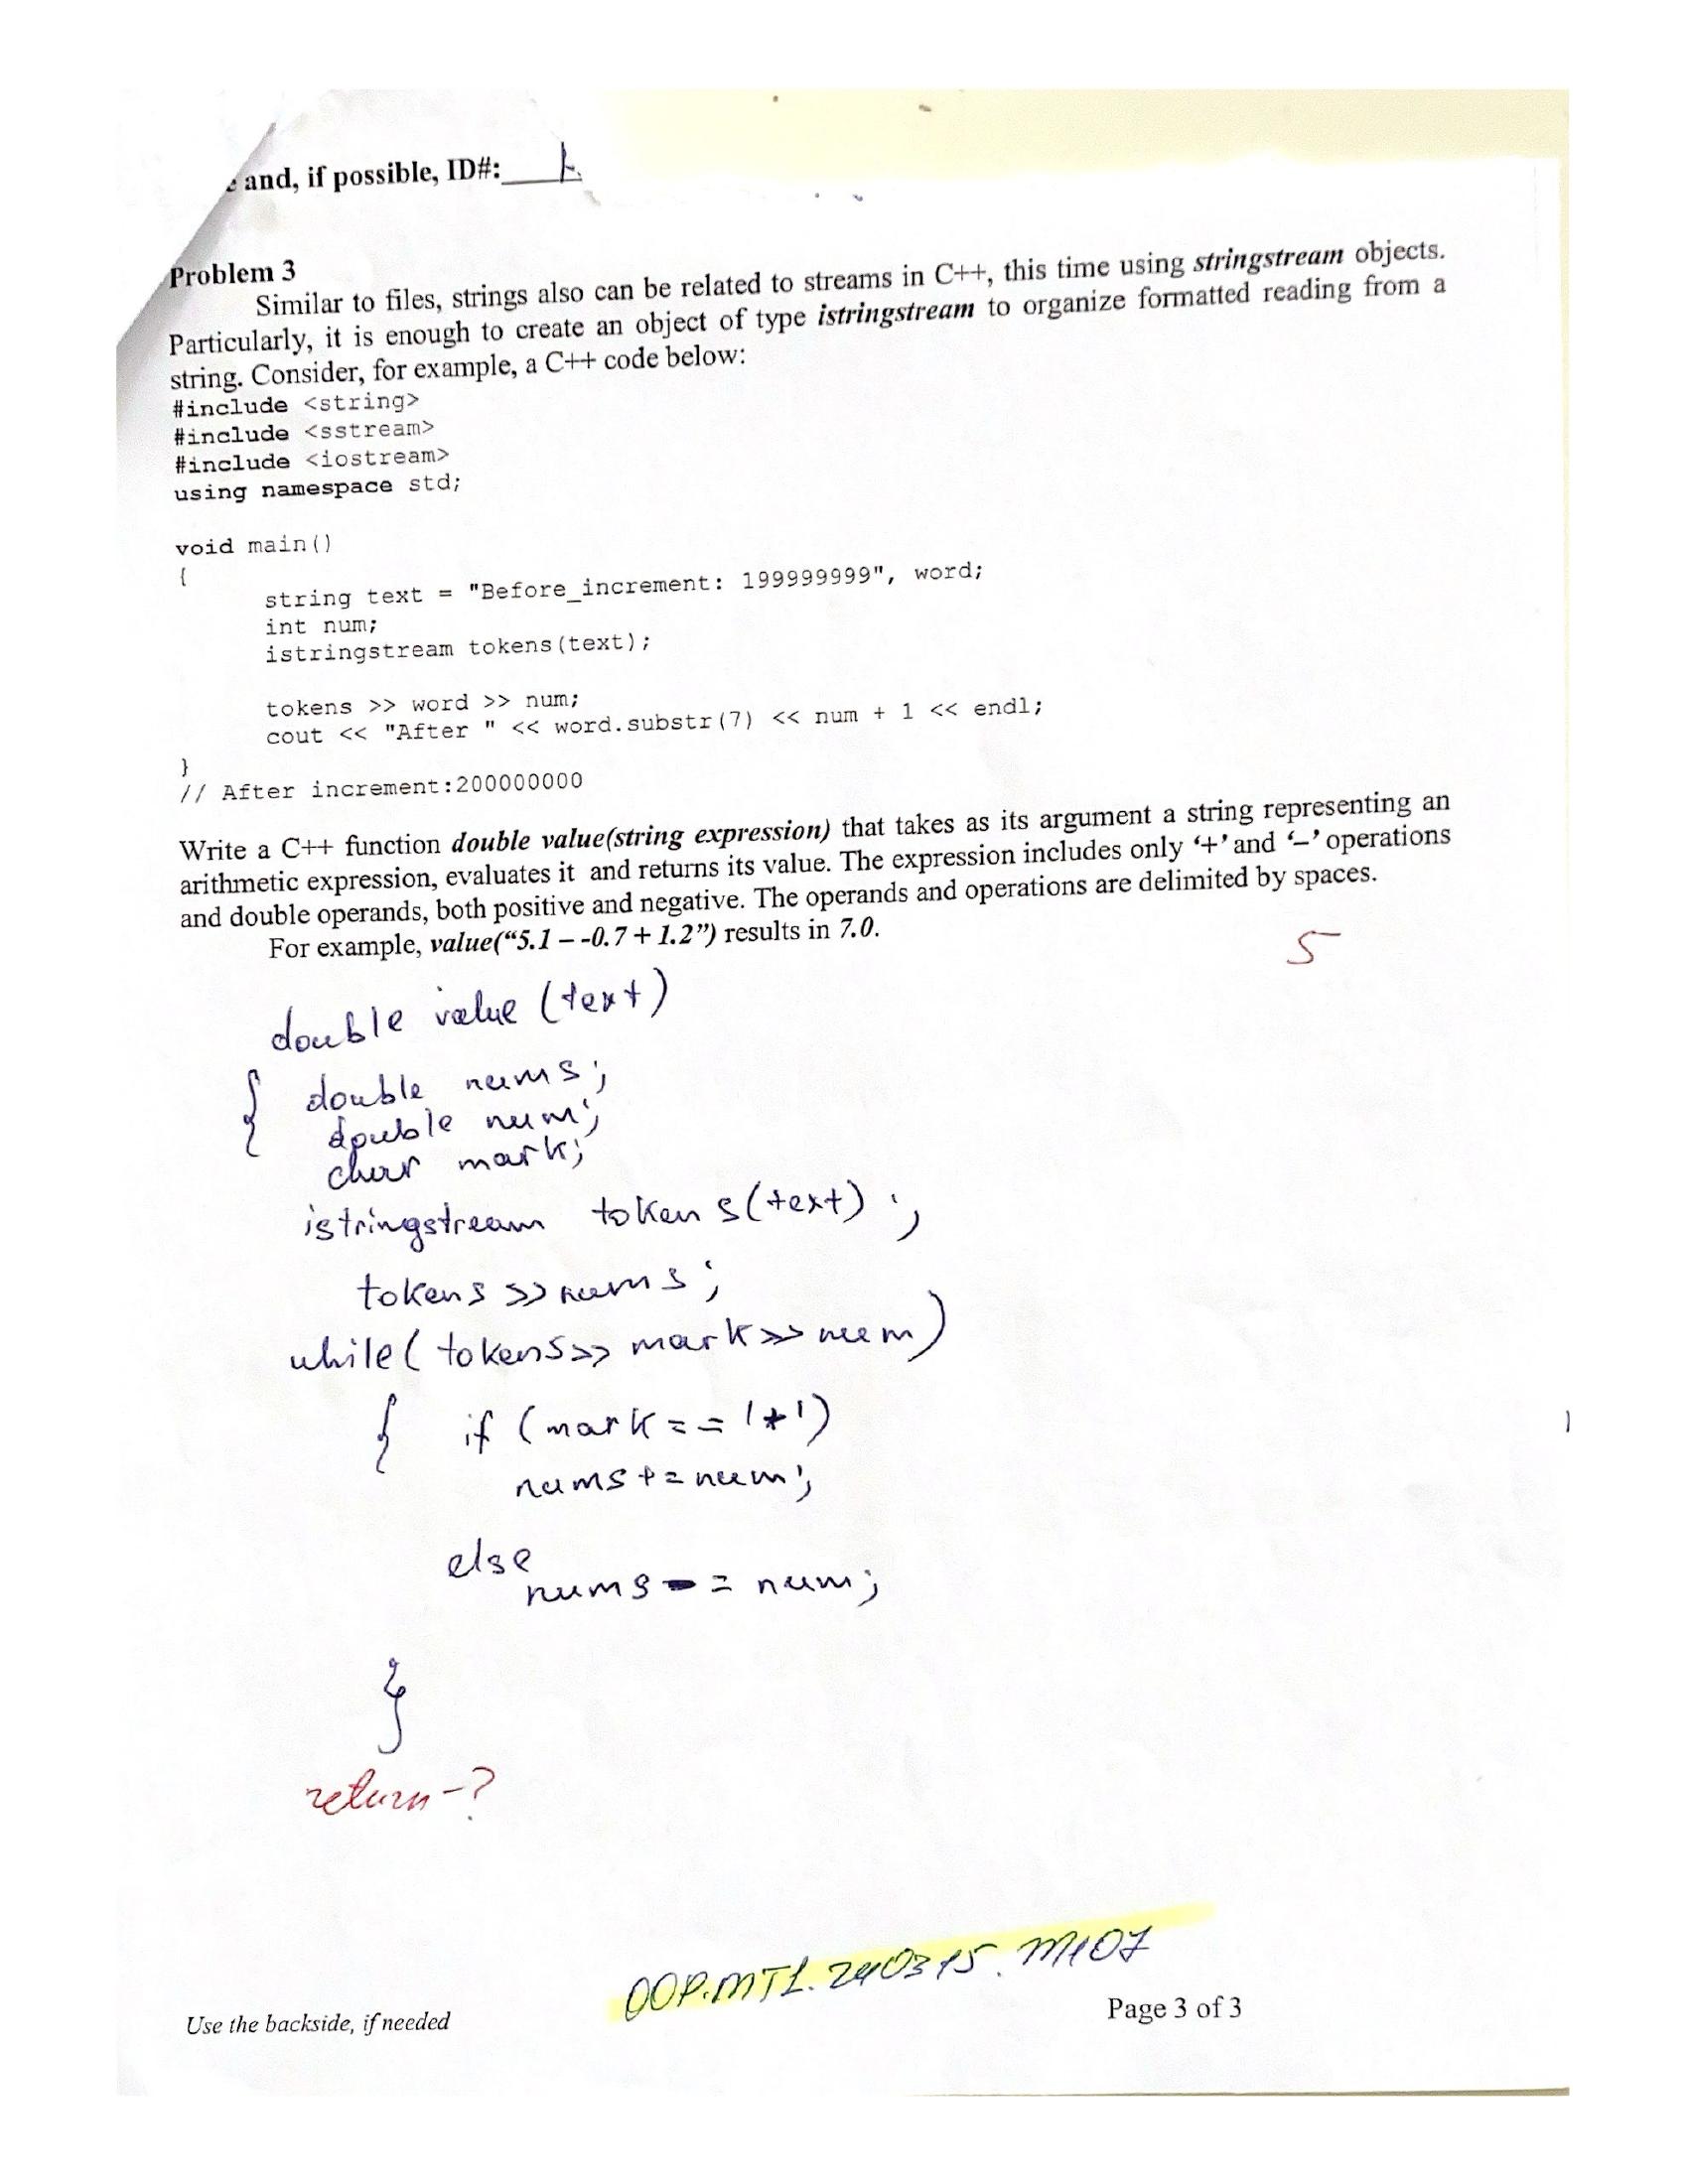 and, if possible, ID#:
Problem 3
Similar to files, strings also can be related to streams in C++, this time using stringstream objects.
Particularly, it is enough to create an object of type istringstream to organize formatted reading from a
string. Consider, for example, a C++ code below:
#include <string>
#include <sstream>
#include <iostream>
using namespace std;
void main()
{
string text = "Before_increment: 199999999", word;
int num;
istringstream tokens(text);
tokens >> word >> num;
cout << "After " << word.substr(7) << num + 1 << endl;
}
// After increment:200000000
Write a C++ function double value(string expression) that takes as its argument a string representing an
arithmetic expression, evaluates it and returns its value. The expression includes only ‘+’ and ‘–’ operations
and double operands, both positive and negative. The operands and operations are delimited by spaces.
For example, value(“5.1 – -0.7 + 1.2”) results in 7.0.
5
double value (text)
{ double nums;
double num;
char mark;
istringstream tokens(text);
tokens >> nums;
while( tokens>> mark>> num)
{ if (mark == '+')
nums += num;
else
nums -= num;
}
return-?
OOP.MT1.240315.M107
Use the backside, if needed
Page 3 of 3